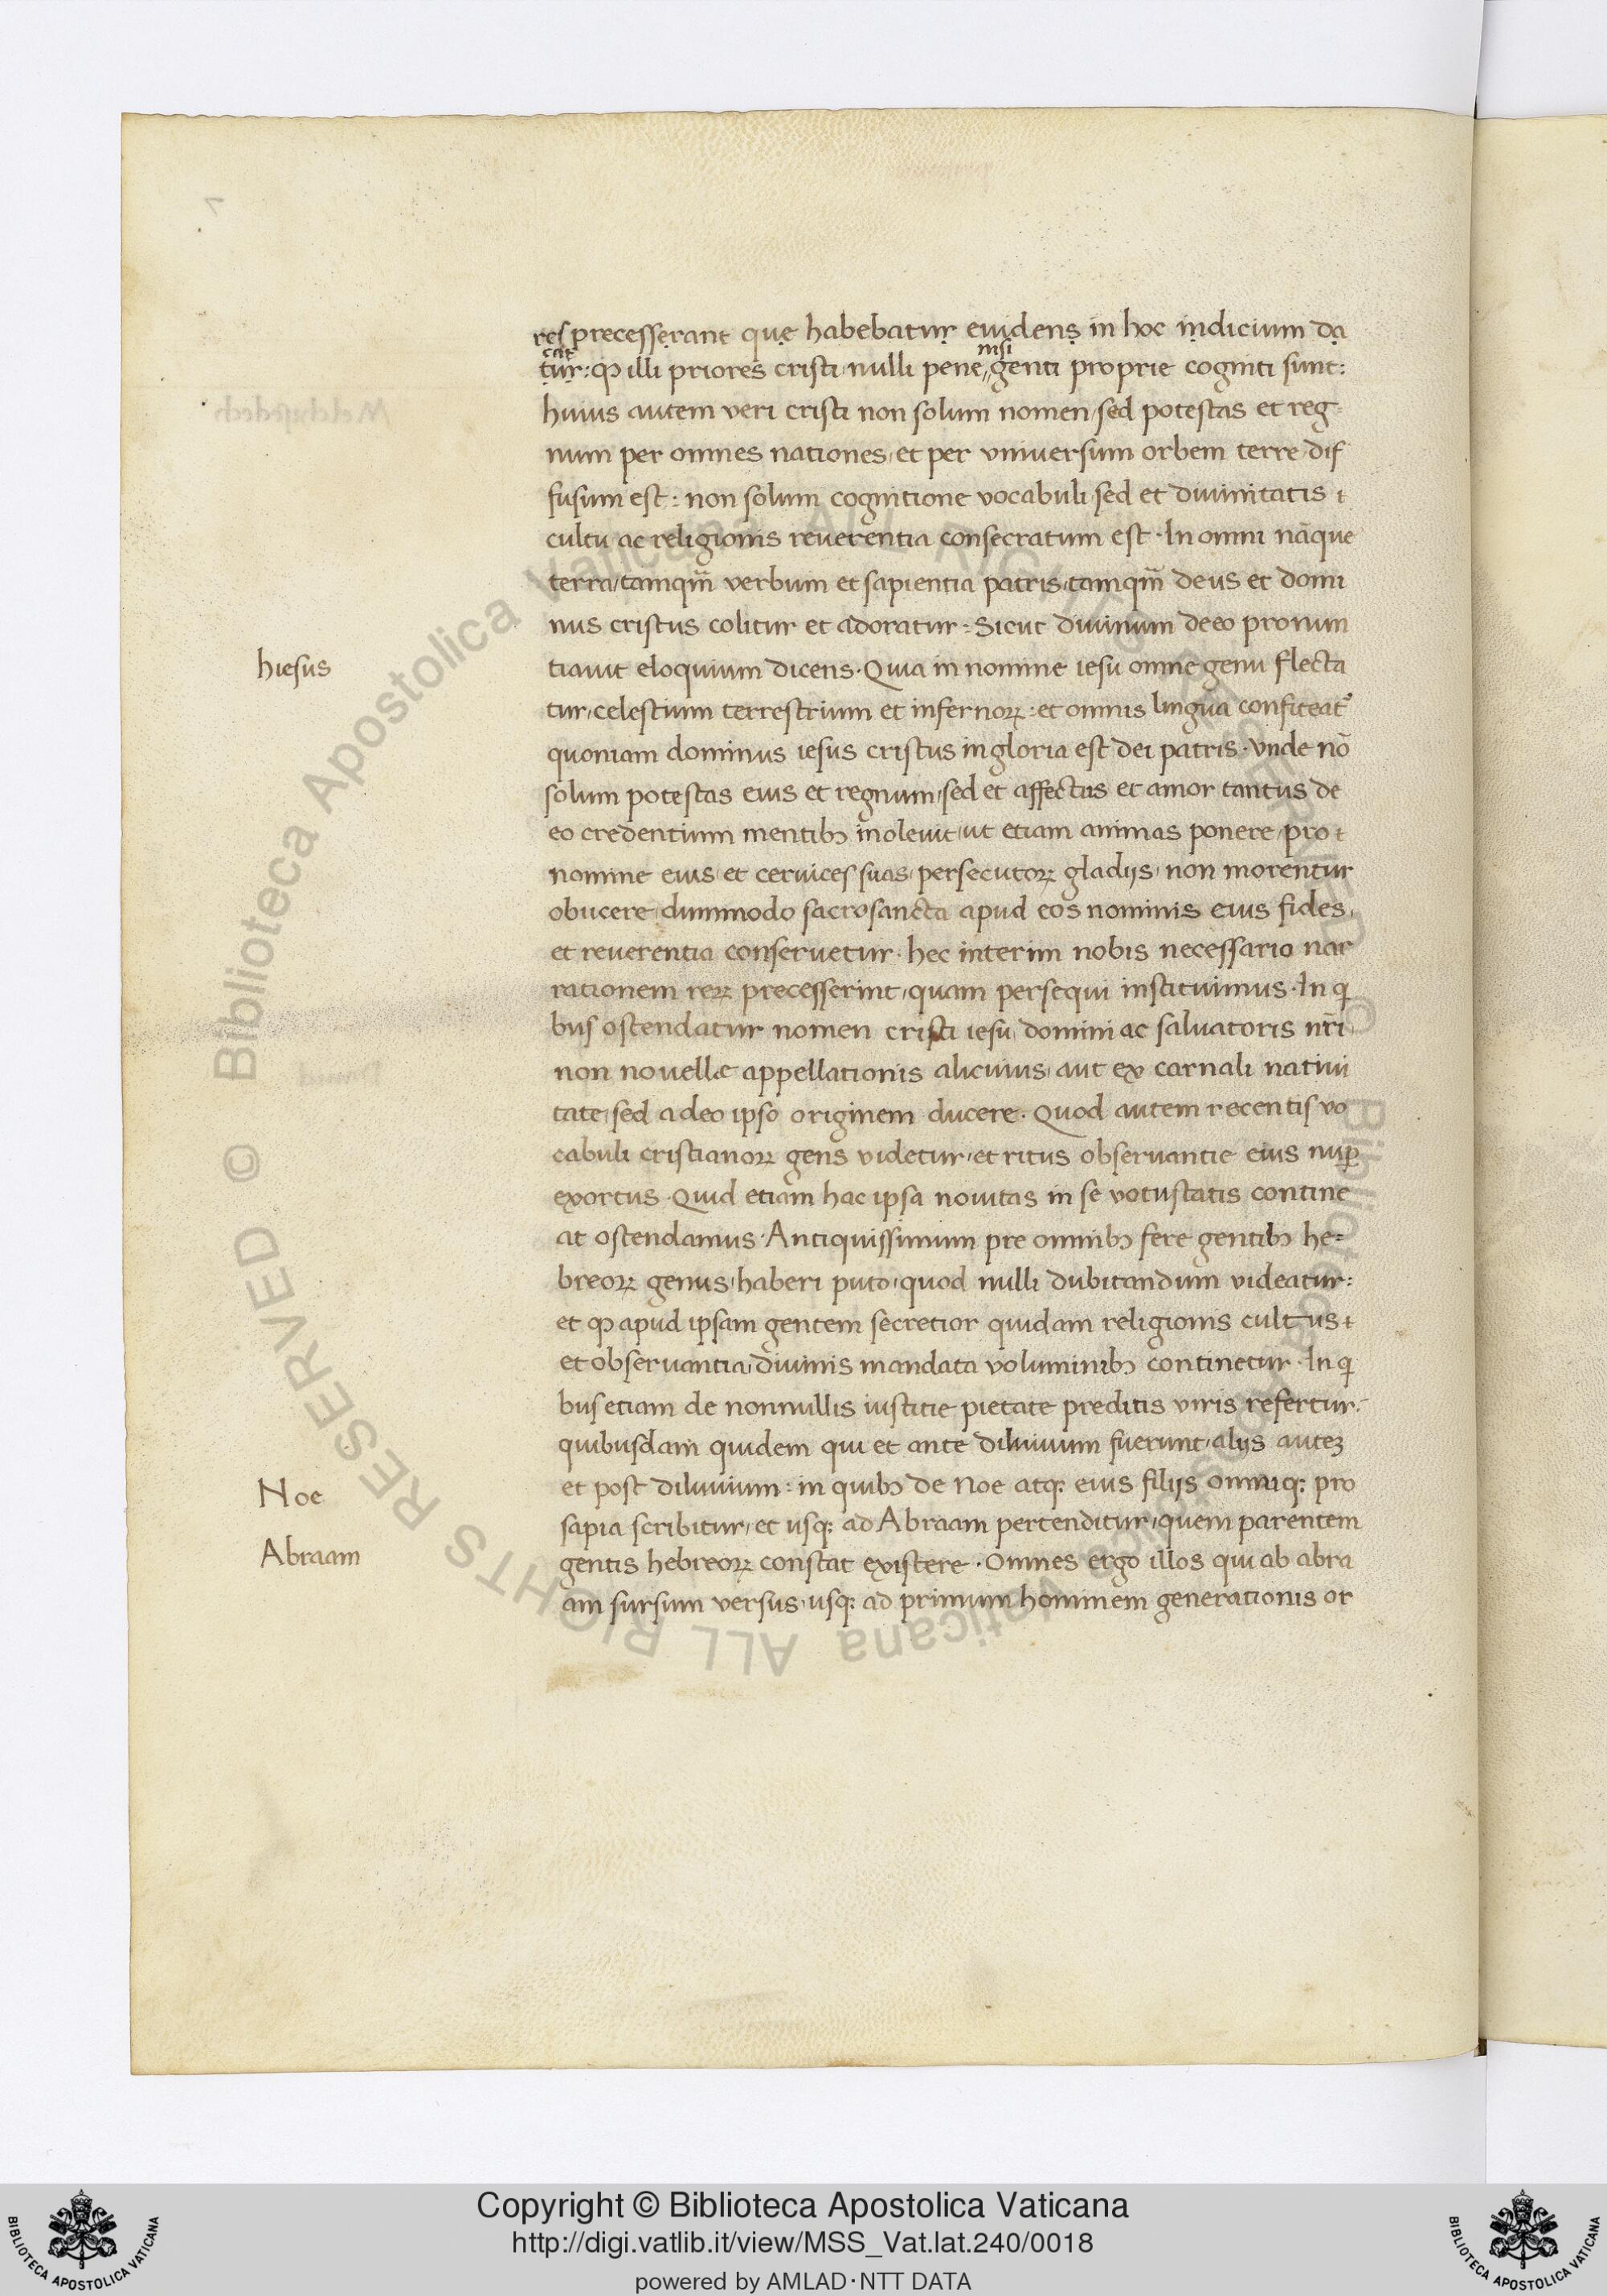 res precesserant que habebatur euidens in hoc indicium da
cat
nisi
tur: ꝙ illi priores cristi nulli pene genti proprie cogniti sunt:
huius autem veri cristi non solum nomen sed potestas et reg-
num per omnes nationes et per vniuersum orbem terre dif
fusum est: non solum cognitione vocabuli sed et diuinitatis
cultu ac religionis reuerentia consecratum est. In omni nāque
terra tamqm̄ verbum et sapientia patris tamqm̄ deus et domi
nus cristus colitur et adoratur: Sicut diuinum de eo pronun
hiesus
tiauit eloquium dicens. Quia in nomine iesu omne genu flecta
tur celestium terrestrium et infernoꝝ: et omnis lingua confiteat᷑
quoniam dominus iesus cristus in gloria est dei patris. Vnde nō
solum potestas eius et regnum sed et affectus et amor tantus de
eo credentium mentibꝫ inoleuit ut etiam animas ponere pro
nomine eius et ceruices suas persecutoꝝ gladijs non morentur
obiicere dummodo sacrosancta apud eos nominis eius fides
et reuerentia conseruetur. hec interim nobis necessario nar
rationem reꝝ precesserint quam persequi instituimus. In qi
bus ostendatur nomen cristi iesu domini ac saluatoris nr̄i
non nouellæ appellationis alicuius aut ex carnali natiui
tate sed a deo ipso originem ducere. Quod autem recentis vo
cabuli cristianoꝝ gens videtur et ritus obseruantie eius nuꝑ
exortus. Quid etiam hac ipsa nouitas in se votustatis contine
at ostendamus. Antiquissimum pre omnibꝫ fere gentibꝫ he-
breoꝝ genus haberi puto quod nulli dubitandum videatur:
et ꝙ apud ipsam gentem secretior quidam religionis cultus
et obseruantia diuinis mandata voluminibꝫ continetur. In qi
bus etiam de nonnullis iustitie pietate preditis viris refertur.
quibusdam quidem qui et ante diluuium fuerunt alijs auteꝫ
Noe
et post diluuium: in quibꝫ de Noe atqꝫ eius filijs omniqꝫ pro
sapia scribitur et usqꝫ ad Abraam pertenditur quem parentem
Abraam
gentis hebreoꝝ constat existere. Omnes ergo illos qui ab abra
am sursum versus usqꝫ ad primum hominem generationis or
© Biblioteca Apostolica Vaticana ALL RIGHTS RESERVED
© Biblioteca Apostolica Vaticana ALL RIGHTS RESERVED
Copyright © Biblioteca Apostolica Vaticana
http://digi.vatlib.it/view/MSS_Vat.lat.240/0018
powered by AMLAD·NTT DATA
BIBLIOTECA APOSTOLICA VATICANA
BIBLIOTECA APOSTOLICA VATICANA